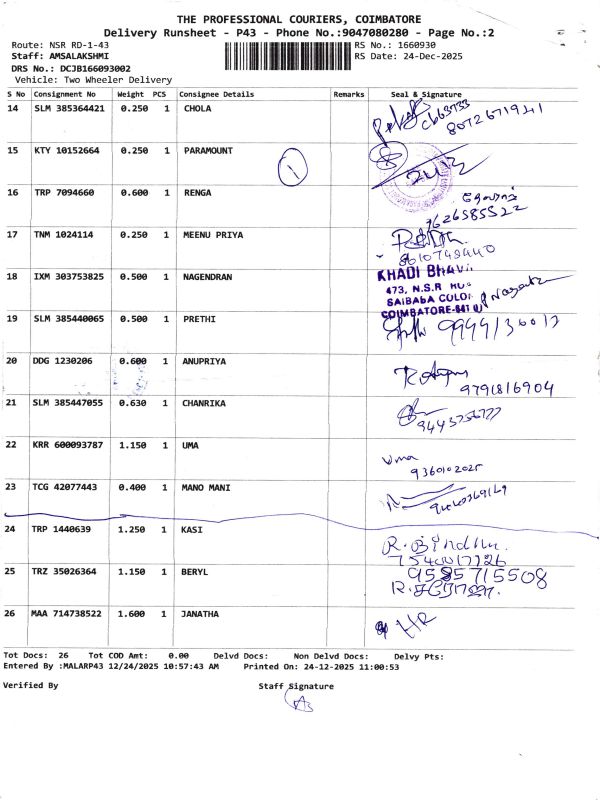 THE PROFESSIONAL COURIERS, COIMBATORE
Delivery Runsheet - P43 - Phone No.:9047080280 - Page No.:2
Route: NSR RD-1-43 RS No.: 1660930
Staff: AMSALAKSHMI RS Date: 24-Dec-2025
DRS No.: DCJB166093002
Vehicle: Two Wheeler Delivery
S No Consignment No Weight PCS Consignee Details Remarks Seal & Signature
14 SLM 385364421 0.250 1 CHOLA
8072671941
15 KTY 10152664 0.250 1 PARAMOUNT
1
16 TRP 7094660 0.600 1 RENGA
7626585522
17 TNM 1024114 0.250 1 MEENU PRIYA
8610748440
18 IXM 303753825 0.500 1 NAGENDRAN
KHADI BHAV
473, N.S.R
SAIBABA COLO
COIMBATORE-641
19 SLM 385440065 0.500 1 PRETHI
20 DDG 1230206 0.600 1 ANUPRIYA
9791816904
21 SLM 385447055 0.630 1 CHANRIKA
22 KRR 600093787 1.150 1 UMA
Uma
9360102025
23 TCG 42077443 0.400 1 MANO MANI
24 TRP 1440639 1.250 1 KASI
R. Bindhu.
25 TRZ 35026364 1.150 1 BERYL
9585715508
26 MAA 714738522 1.600 1 JANATHA
HR
Tot Docs: 26 Tot COD Amt: 0.00 Delvd Docs: Non Delvd Docs: Delvy Pts:
Entered By :MALARP43 12/24/2025 10:57:43 AM Printed On: 24-12-2025 11:00:53
Verified By Staff Signature